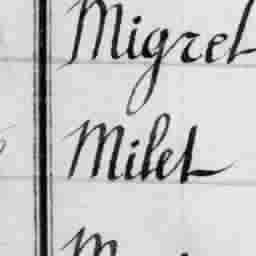 Migrel
Milet